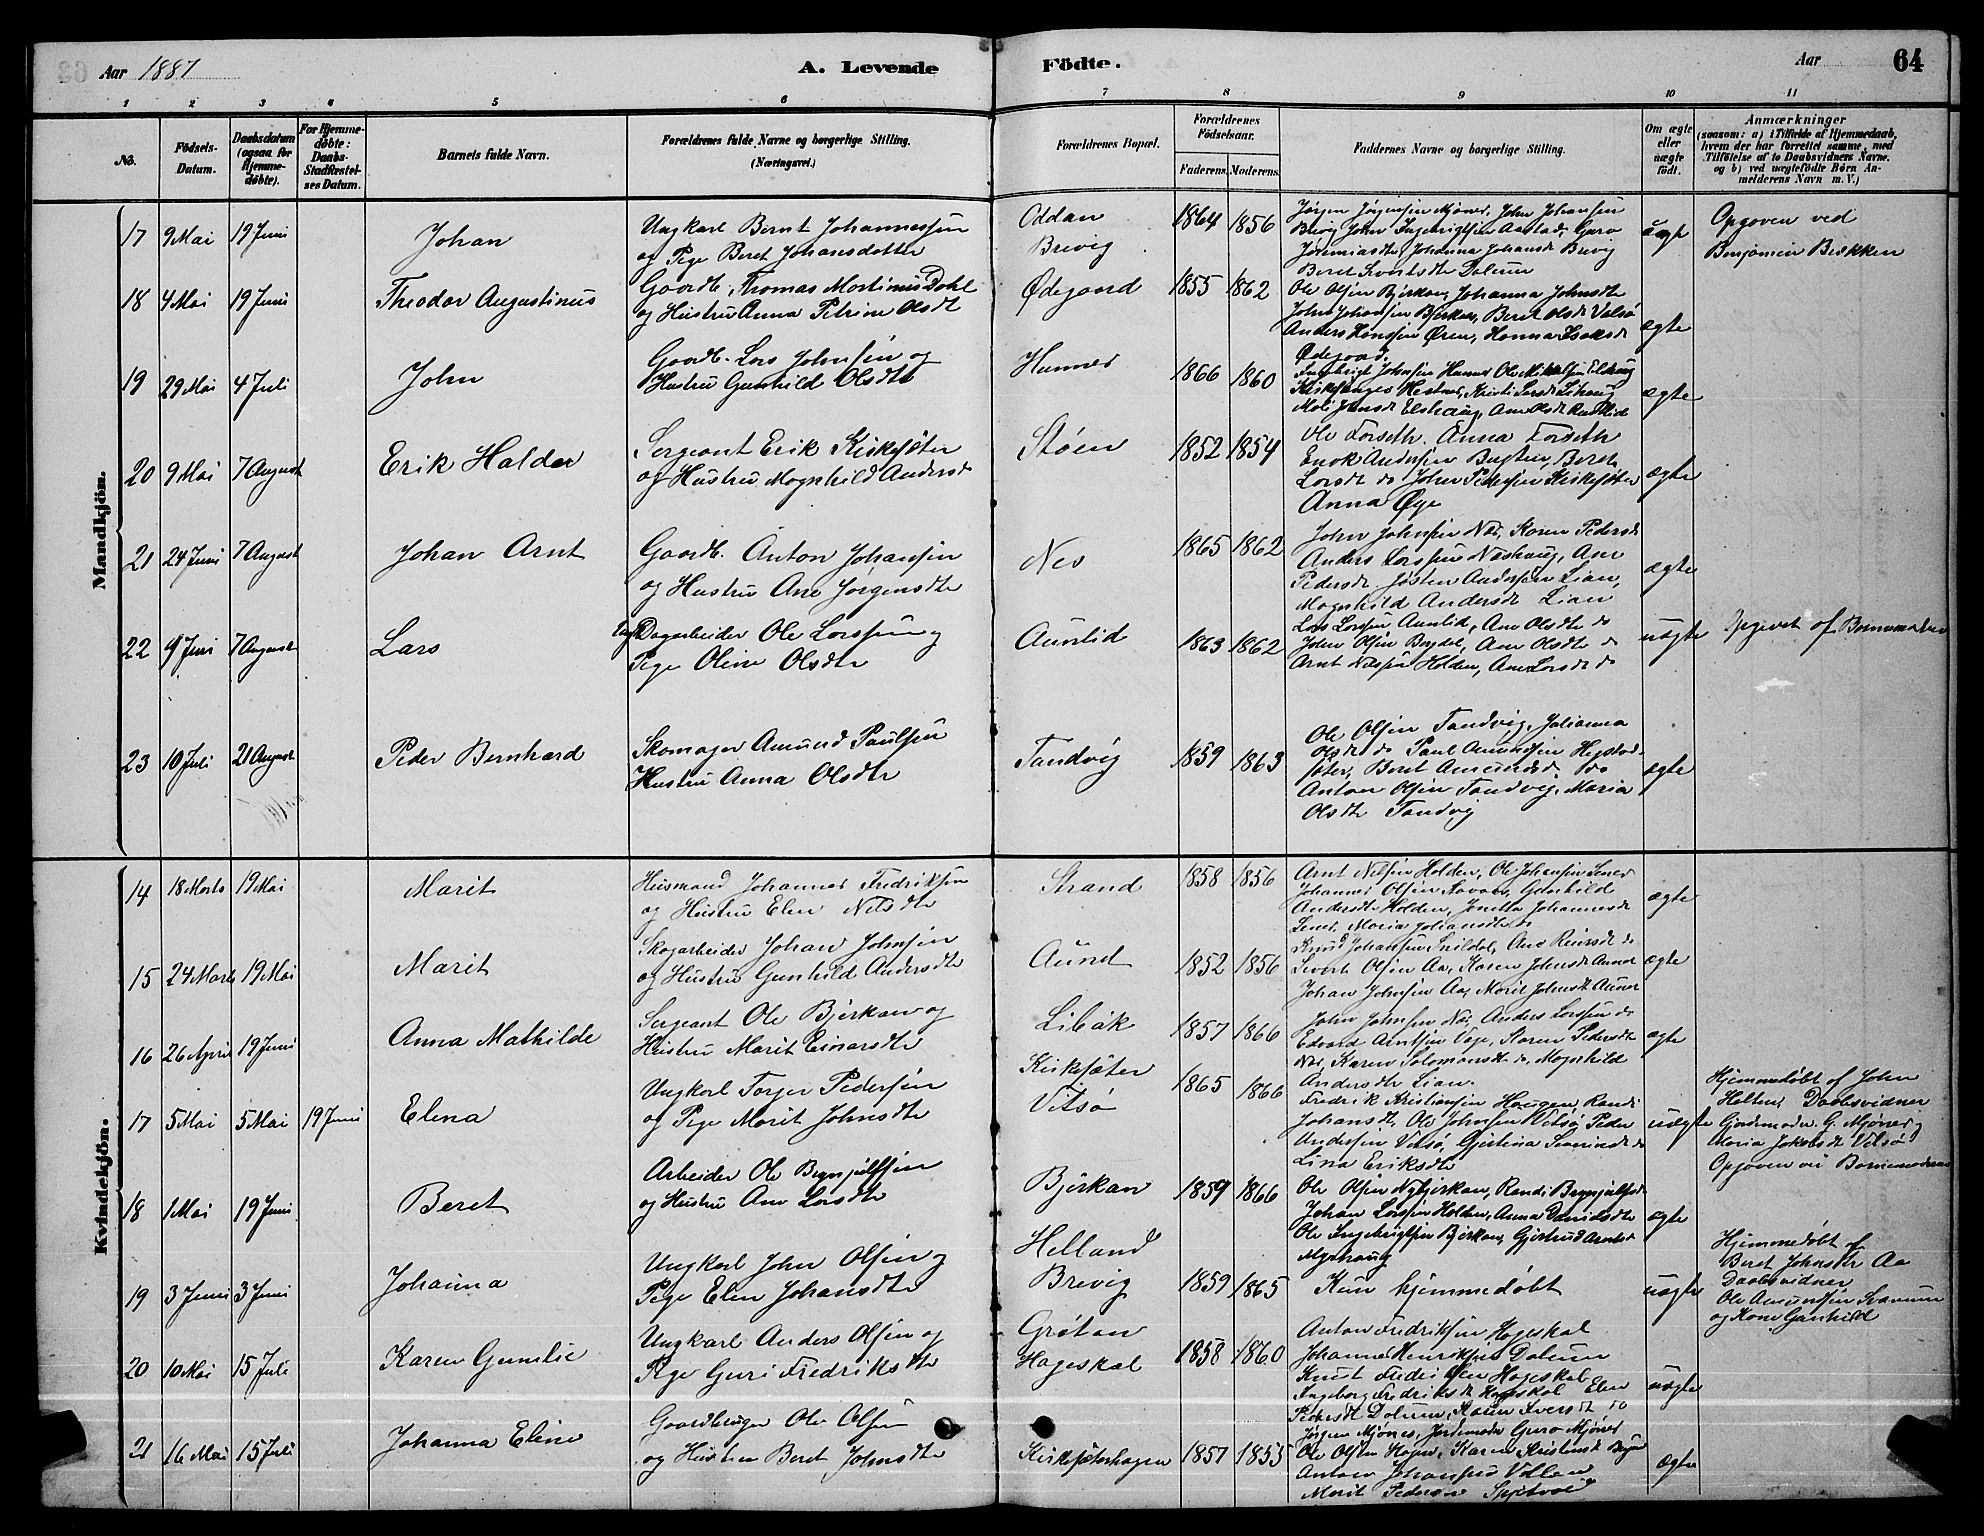 Aar 1887
A. Levende
Födte.
Aar
64
1 2 3 4 5 6 7 8 9 10 11
No.
Födsels-
Datum.
Daabsdatum
(ogsaa for
Hjemme-
döbte).
For Hjemme-
döbte:
Daabs-
Stadfæstel-
ses Datum.
Barnets fulde Navn.
Forældrenes fulde Navne og borgerlige Stilling.
(Næringsvei.)
Forældrenes Bopæl.
Forældrenes
Födselsaar.
Faderens. Moderens.
Faddernes Navne og borgerlige Stilling.
Om ægte
eller
uægte
födt.
Anmærkninger
(saasom: a) i Tilfælde af Hjemmedaab,
hvem der har forrettet samme, med
Tilföielse af to Daabsvidners Navne.
og b) ved uægtefödte Börn An-
melderens Navn m. V.)
Mandkjön.
17 9 Mai 19 Juni Johan
Ungkarl Bernt Johannessen
og Pige Beret Johansdotter
Oddan
Brevig
1864 1856
Jørgen Jørgensen Mjønes, John Johansen
Brevig John Ingebrigtsen Aastad, Guro
Jeremiasdtr, Johanna Johansdt Brevig
Beret Sivertsdtr Dolum
uægte
Opgoven ved
Benjamin Bækken
18 4 Mai 19 Juni Theodor Augustinus
Gaardb. Thomas Martinus Dahl
og Hustru Anna Petrine Olsdt
Ødegaard
1855 1862
Ole Olsen Bjørkan, Johanna Johnsdtr
John Johansen Bjørkan, Beret Olsdt Vitsø
Anders Hanssen Øren, Hanna Isaksdt
Ødegaard.
ægte
19 29 Mai 4 Juli John
Gaardb. Lars Johnsen og
Hustru Gunhild Olsdtr
Hunnes
1866 1860
Ingebrigt Johnsen Hunnes Ole Mikkelsen Elshaug
Moli Johnsdt Elshaug, Ane Olsdt Rundlid
ægte
20 9 Mai 7 August Erik Halder
Sergeant Erik Kirksæter
og Hustru Magnhild Andersdt
Støen
1852 1854
Ole Forseth. Anna Forseth
Enok Andersen Bugten, Beret
Larsdt do John Pedersen Kirksæter
Anna Øye
ægte
21 24 Juni 7 August Johan Arnt
Gaardb. Anton Johansen
og Hustru Ane Jørgensdtr
Nes
1865 1862
John Johnsen Næs, Karen Pedersdt
Anders Larssen Næshaug, Ane
Pedersdt Jøsten Andersen Lian,
Magnhild Andersdt Lian
ægte
22 9 Juni 7 August Lars
Ungk Dagarbeider Ole Larssen og
Pige Oline Olsdtr
Aunlid
1863 1862
Lars Larssen Aunlid, Ane Olsdtr do
John Olsen Bogdal, Ane Olsdtr do
Arnt Nilssen Holden, Ane Larsdt do
uægte
Opgivet af Barnemoder
23 10 Juli 21 August Peder Bernhard
Skomager Amund Paulsen
Hustru Anna Olsdtr
Tandvig
1859 1863
Ole Olsen Tandvig, Johanna
Olsdt do Paul Amundsen Hegstad-
sæter, Beret Amundsd. do
Anton Olsen Tandvig, Maria
Olsdtr Tandvig
ægte
Kvindekjön.
14 18 Marts 19 Mai Marit
Husmand Johannes Fredriksen
og Hustru Elen Nilsdtr
Strand
1858 1856
Arnt Nilsen Holden, Ole Johansen Senes
Johannes Olsen Stavan, Gunhild
Andersdtr Holden, Jonetta Johannesdt
Senes, Maria Johansdtr do
ægte
15 24 Marts 19 Mai Marit
Skogarbeider Johan Johnsen
og Hustru Gunhild Andersdtr
Aund
1852 1856
Knud Johansen Snildal, Ane Reirsdt do
Sivert Olsen Aa, Karen Johnsdt Aunes
Johan Johnsen Aa, Marit Johnsdt Aunes
ægte
16 26 April 19 Juni Anna Mathilde
Sergeant Ole Bjørkan og
Hustru Marit Einarsdtr
Libæk
1857 1866
John Johnsen Næs Anders Larssen do
Edvard Arntsen Vaje, Karen Pedersdtr
Næs, Karen Solomonsdt do, Magnhild
Andersdtr Lian.
ægte
17 5 Mai 5 Mai 19 Juni Elena
Ungkarl Torger Pedersen
og Pige Marit Johnsdtr
Kirksæter
Vitsø
1865 1866
Fredrik Kristiansen Haugen, Randi
Johansdt, Ole Johnsen Vitsø, Peder
Andersen Vitsø, Gjertina Severinsdt do
Lina Eriksdtr
uægte
Hjemmedøbt af John
Holten, Daabsvidner
Gjordemoder G. Mjønes og
Maria Jakobsdt Vitsø
Opgoven ved Barnemoderen
18 1 Mai 19 Juni Beret
Arbeider Ole Brynjulfsen
og Hustru Ane Larsdtr
Bjørkan
1859 1866
Ole Olsen Nybjørkan, Randi Brynjulfsd
Johan Larsen Holden, Anna Davidsdtr
Ole Ingebrigtsen Bjørkan, Gjertrud Arntsd
Myrhaug
ægte
19 3 Juni 3 Juni Johanna
Ungkarl John Olsen og
Pige Elen Johansdtr
Helland
Brevig
1859 1865
Kun hjemmedøbt
uægte
Hjemmedøbt af
Beret Johnsdtr Aa
Daabsvidner
Ole Amundsen Stavnum
og Kone Gunhild
20 10 Mai 15 Juli Karen Gurulie
Ungkarl Anders Olsen og
Pige Guri Fredriksdtr
Grøtan
Hageskal
1858 1860
Anton Fredriksen Hageskal
Johannes Henriksen Dolum
Knut Fredriksen Hageskal
Ingeborg Fredriksdt Hageskal Elen
Pedersdt Dolum, Karen Iversdt do
uægte
21 16 Mai 15 Juli Johanna Eline
Gaardbruger Ole Olsen
og Hustru Beret Johnsdtr
Kirksæterhagen
1857 1853
Jørgen Mjønes, Jordemoder Guro Mjønes
Ole Olsen Hagen, Karen Kristensdt
Anton Johansen Vollan
Marit Pedersdtr
ægte